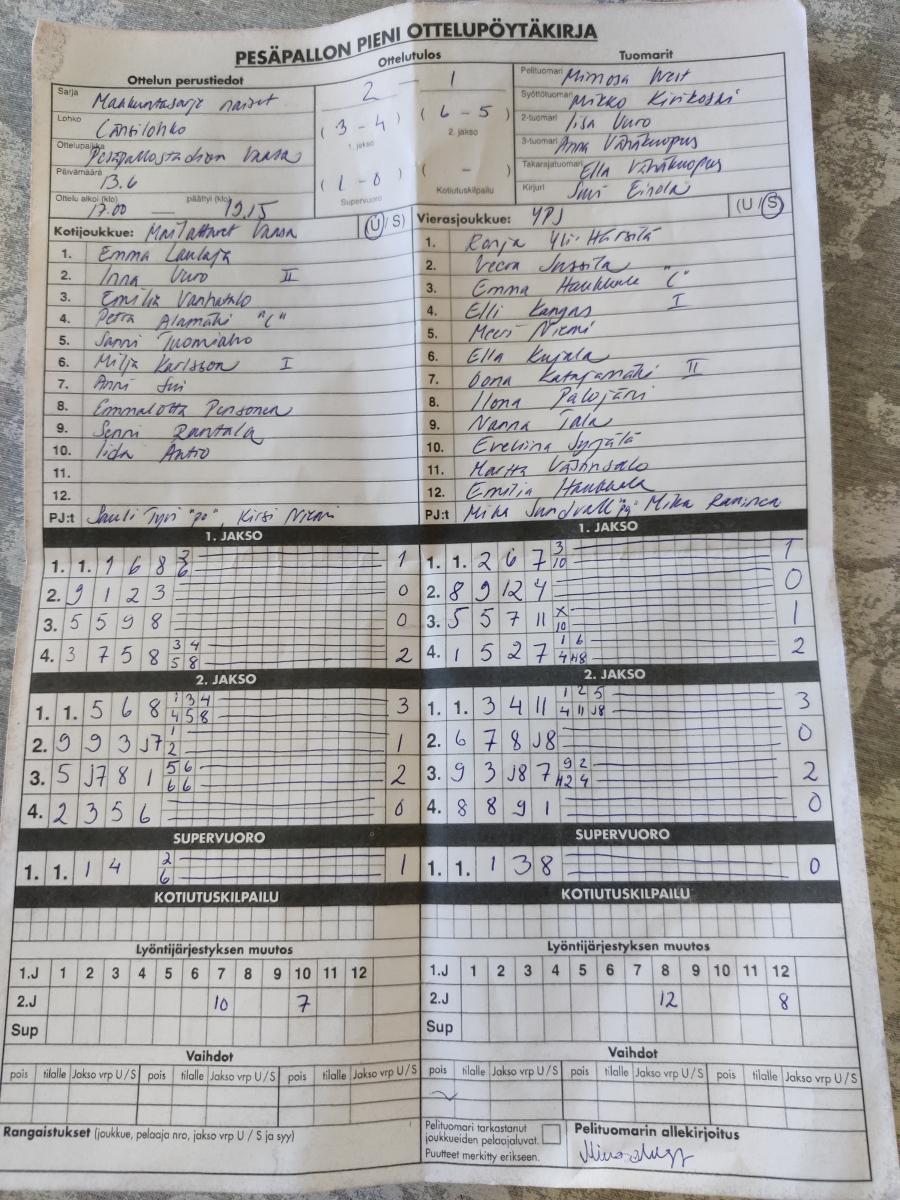 PESÄPALLON PIENI OTTELUPÖYTÄKIRJA
Ottelun perustiedot
Ottelutulos
Tuomarit
Sarja Maakuntasarja naiset
Lohko Länsilohko
Ottelupaikka Pesäpallostadion Vaasa
Päivämäärä 13.6
Ottelu alkoi (klo) 17.00 — päättyi (klo) 19.15
2 1
( 3 - 4 ) ( 6 - 5 )
1. jakso 2. jakso
( 1 - 0 ) ( - )
Supervuoro Kotiutuskilpailu
Pelituomari Mimosa West
Syöttötuomari Mikko Kivikoski
2-tuomari Iisa Vuro
3-tuomari Anna Vähäkuopus
Takarajatuomari Ella Vähäkuopus
Kirjuri Suvi Einola
Kotijoukkue: Mailattaret Vaasa (U / S)
1. Emma Laulaja
2. Inna Vuro II
3. Emilia Vanhatalo
4. Petra Alamäki "C"
5. Sanni Tuomiaho
6. Milja Karlsson I
7. Anni
8. Emmalotta Pensonen
9. Senni Rantala
10. Iida Antio
11.
12.
PJ:t Sauli "pj", Kirsi Niemi
Vierasjoukkue: YPJ (U / S)
1. Ronja Yli-Härsilä
2. Veera Jussila
3. Emma Haukkala "C"
4. Elli Kangas I
5. Meeri Niemi
6. Ella Kujala
7. Oona Katajamäki II
8. Ilona Palojärvi
9. Nanna Tala
10. Eveliina Syrjälä
11. Martta
12. Emilia Haukkala
PJ:t Mika Sundvall "pj" Mika
1. JAKSO
1. 1. 1 6 8 3 6 1
2. 9 1 2 3 0
3. 5 5 9 8 0
4. 3 7 5 8 3 4 5 8 2
2. JAKSO
1. 1. 5 6 8 1 3 4 4 5 8 3
2. 9 9 3 J7 1 2 1
3. 5 J7 8 1 5 6 6 6 2
4. 2 3 5 6 0
SUPERVUORO
1. 1. 1 4 2 6 1
KOTIUTUSKILPAILU
1. JAKSO
1. 1. 2 6 7 3 10 1
2. 8 9 12 4 0
3. 5 5 7 11 X 10 1
4. 1 5 2 7 1 6 4 H8 2
2. JAKSO
1. 1. 3 4 11 1 2 5 4 11 J8 3
2. 6 7 8 J8 0
3. 9 3 J8 7 9 2 H2 4 2
4. 8 8 9 1 0
SUPERVUORO
1. 1. 1 3 8 0
KOTIUTUSKILPAILU
Lyöntijärjestyksen muutos
1.J 1 2 3 4 5 6 7 8 9 10 11 12
2.J 10 7
Sup
Vaihdot
pois tilalle Jakso vrp U / S pois tilalle Jakso vrp U / S pois tilalle Jakso vrp U / S
Lyöntijärjestyksen muutos
1.J 1 2 3 4 5 6 7 8 9 10 11 12
2.J 12 8
Sup
Vaihdot
pois tilalle Jakso vrp U / S pois tilalle Jakso vrp U / S pois tilalle Jakso vrp U / S
Rangaistukset (joukkue, pelaaja nro, jakso vrp U / S ja syy)
Pelituomari tarkastanut
joukkueiden pelaajaluvat.
Puutteet merkitty erikseen.
Pelituomarin allekirjoitus